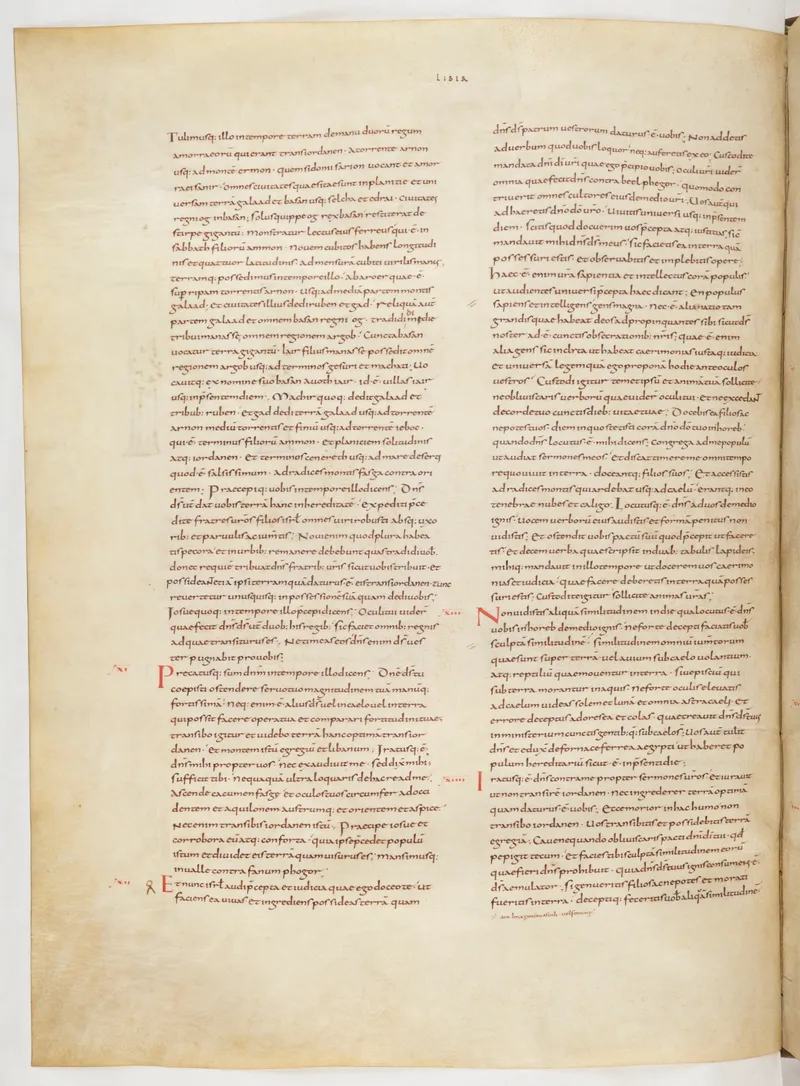 LIBER
Tulimusq: illo in tempore terram de manu duorū regum
amorraeorū qui erant trans iordanen. A torrente arnon
usq: ad monte ermon. quem sidonii sarion uocant et amor
raei sanir. omnes ciuitates quae sitae sunt in planitie et uni
uersam terrā galaad et basan usq: selcha et edrai. Ciuitates
regni og in basan; Solus quippe og rex basan restiterat de
stirpe gigantū. Monstratur lectus eius ferreus qui ē in
rabbath filiorū ammon. Nouem cubitos habens longitudi
nis et quattuor latitudinis. Ad mensurā cubiti uirilis manus.
terramq: possedimus in tempore illo. Ab aroer quae ē
sup ripam torrentis arnon. Usq: ad mediā partem montis
galaad. et ciuitates illius dedi ruben et gad. reliquā aut
partem galaad et omnem basan regni og. tradidi medie
tribui manasse omnem regionem argob. Cuncta basan
uocatur terra gigantū. Iair filius manasse possedit omnē
regionem argob usq: ad terminos gesuri et machati. Uo
cauitq: ex nomine suo basan auoth iair. id ē uillas iair
usq: in psentem diem. Machir quoq: dedi galaad et
tribub: ruben et gad dedi terrā galaad usq: ad torrentē
arnon mediū torrentis et finiū usq: ad torrentē ieboc.
qui ē terminus filiorū ammon. Et planitiem solitudinis
atq: iordanen. Et terminos cenereth usq: ad mare deserti
quod ē salsissimum. Ad radices montis fasga contra ori
entem. Praecepiq: uobis in tempore illo dicens. Dn̄s
d̄s ur̄ dat uobis terrā hanc in hereditatē. expediti p̄ce
dite fratres ur̄os filios isrl̄ omnes uiri robusti absq: uxo
rib: et paruulis ac iumtis. Noui enim quod plura habea
tis pecora et in urbib: remanere debebunt quas tradidi uob.
donec requiē tribuat dn̄s fratrib: uris sicut uobis tribuit. et
possideant etiā ipsi terram quā daturus ē eis trans iordanen. tunc
reuertetur unusquisq: in possessionē suā quam dedi uobis.
Iosue quoq: in tempore illo p̄cepi dicens. Oculi tui uider
quae fecit dn̄s d̄s ur̄ duob: his regib: sic faciet omnib: regnis
ad quae transiturus es. Ne timeas eos dn̄s enim d̄s ues
ter pugnabit pro uobis.
Precatusq: sum dn̄m in tempore illo dicens. Dn̄e d̄s tu
coepisti ostendere seruo tuo magnitudinem tuā manūq:
fortissimā. neq: enim ē alius d̄s uel in caelo uel in terra
qui possit facere opera tua et comparari fortitudini tuae.
transibo igitur et uidebo terrā hanc optimā trans ior
danen. et montem istū egregiū et libanum; Iratusq: ē
dn̄s mihi propter uos. nec exaudiuit me. sed dix mihi;
sufficit tibi. nequaquā ultra loquaris de hac re ad me.
Ascende cacumen fasgę et oculos tuos circumfer ad occi
dentem et aquilonem austrumq: et orientem et aspice.
Nec enim transibis iordanen istū. Praecipe iosue et
corrobora eū atq: conforta. quia ipse p̄cedet populū
istum et diuidet eis terrā quam uisurus es. Mansimusq:
in ualle contra fanum phogor.
Et nunc isrl̄ audi p̄cepta et iudicia quae ego doceo te. ut
faciens ea uiuas et ingrediens possideas terrā quam
dn̄s d̄s patrum uestrorum daturus ē uobis. Non addetis
ad uerbum quod uobis loquor neq: auferetis ex eo. Custodite
mandata dn̄i d̄i uri quae ego p̄cipio uobis. Oculi uri uider
omnia quae fecit dn̄s contra beelphegor. quomodo con
triuerit omnes cultores eius de medio uri. Uos aut qui
adheretis dn̄o d̄o uro. Uiuitis uniuersi usq: in p̄sentem
diem. Scitis quod docuerim uos p̄cepta atq: iustitias sic
mandauit mihi dn̄s d̄s meus. sic facietis ea in terra quā
possessuri estis. et obseruabitis et implebitis opere.
haec ē enim ura sapientia et intellectus corā populis
ut audientes uniuersi p̄cepta haec dicant; En populus
sapiens et intelligens gens magna. Nec ē alia natio tam
grandis quae habeat deos adpropinquantes sibi sicut d̄s
noster adē cunctis obsecrationib: nris; quae ē enim
alia gens sic inclita ut habeat caerimonias iustaq: iudicia
et uniuersā legem quā ego proponā hodie ante oculos
uestros. Custodi igitur temetipsū et animā tuā sollicite
ne obliuiscaris uerborū quae uiderunt oculi tui. et ne excedant
de corde tuo cunctis dieb: uitae tuae. Docebis ea filios ac
nepotes tuos. diem in quo stetisti corā dn̄o d̄o tuo in horeb.
quando dn̄s locutus ē mihi dicens. Congrega ad me populū
ut audiat sermones meos. et discat timere me omni tempo
re quo uiuit in terra. doceantq: filios suos. Et accessistis
ad radices montis qui ardebat usq: ad caelū. erantq: in eo
tenebrae nubes et caligo. Locutusq: ē dn̄s ad uos de medio
ignis. Uocem uerborū eius audistis et formā penitus non
uidistis. Et ostendit uobis pactū suū quod p̄cepit ut facere
tis. et decem uerba quae scripsit in duab: tabulis lapideis.
mihiq: mandauit in illo tempore ut docerem uos caerimo
nias et iudicia. quae facere deberetis in terra quā posses
suri estis. Custodite igitur sollicite animas uras.
Non uidistis aliquā similitudinem in die qua locutus ē dn̄s
uobis in horeb de medio ignis. ne forte decepti faciatis uob
sculptā similitudinē. similitudinem omniū iumtorum
quae sunt super terrā. uel auium sub caelo uolantium.
atq: reptiliū quae mouentur in terra. siue pisciū qui
sub terra morantur in aquis. Ne forte oculis eleuatis
ad caelum uideas solem et lunā et omnia astra caeli. et
errore deceptus adores ea et colas. quae creauit dn̄s d̄s tuus
in ministerium cunctis gentib: q: sub caelo s̄. Uos aut tulit
dn̄s et eduxᵗ de fornace ferrea aegypti ut haberet po
pulum hereditariū sicut ē in p̄senti die;
Iratusq: ē dn̄s contra me propter sermones uros. et iurauit
ut non transirē iordanen. nec ingrederer terrā optimā
quam daturus ē uobis. Ecce morior in hac humo non
transibo iordanen. Uos transibitis et possidebitis terrā
egregiā. Caue ne quando obliuiscaris pacti dn̄i d̄i tui. qd̄
pepigit tecum. et facias tibi sculptā similitudinem eorū
quae fieri dn̄s prohibuit. Quia dn̄s d̄s tuus ignis consumens ē.
d̄s aemulator. si genueritis filios ac nepotes et morati
fueritis in terra. deceptiq: feceritis uob aliquā similitudinē.